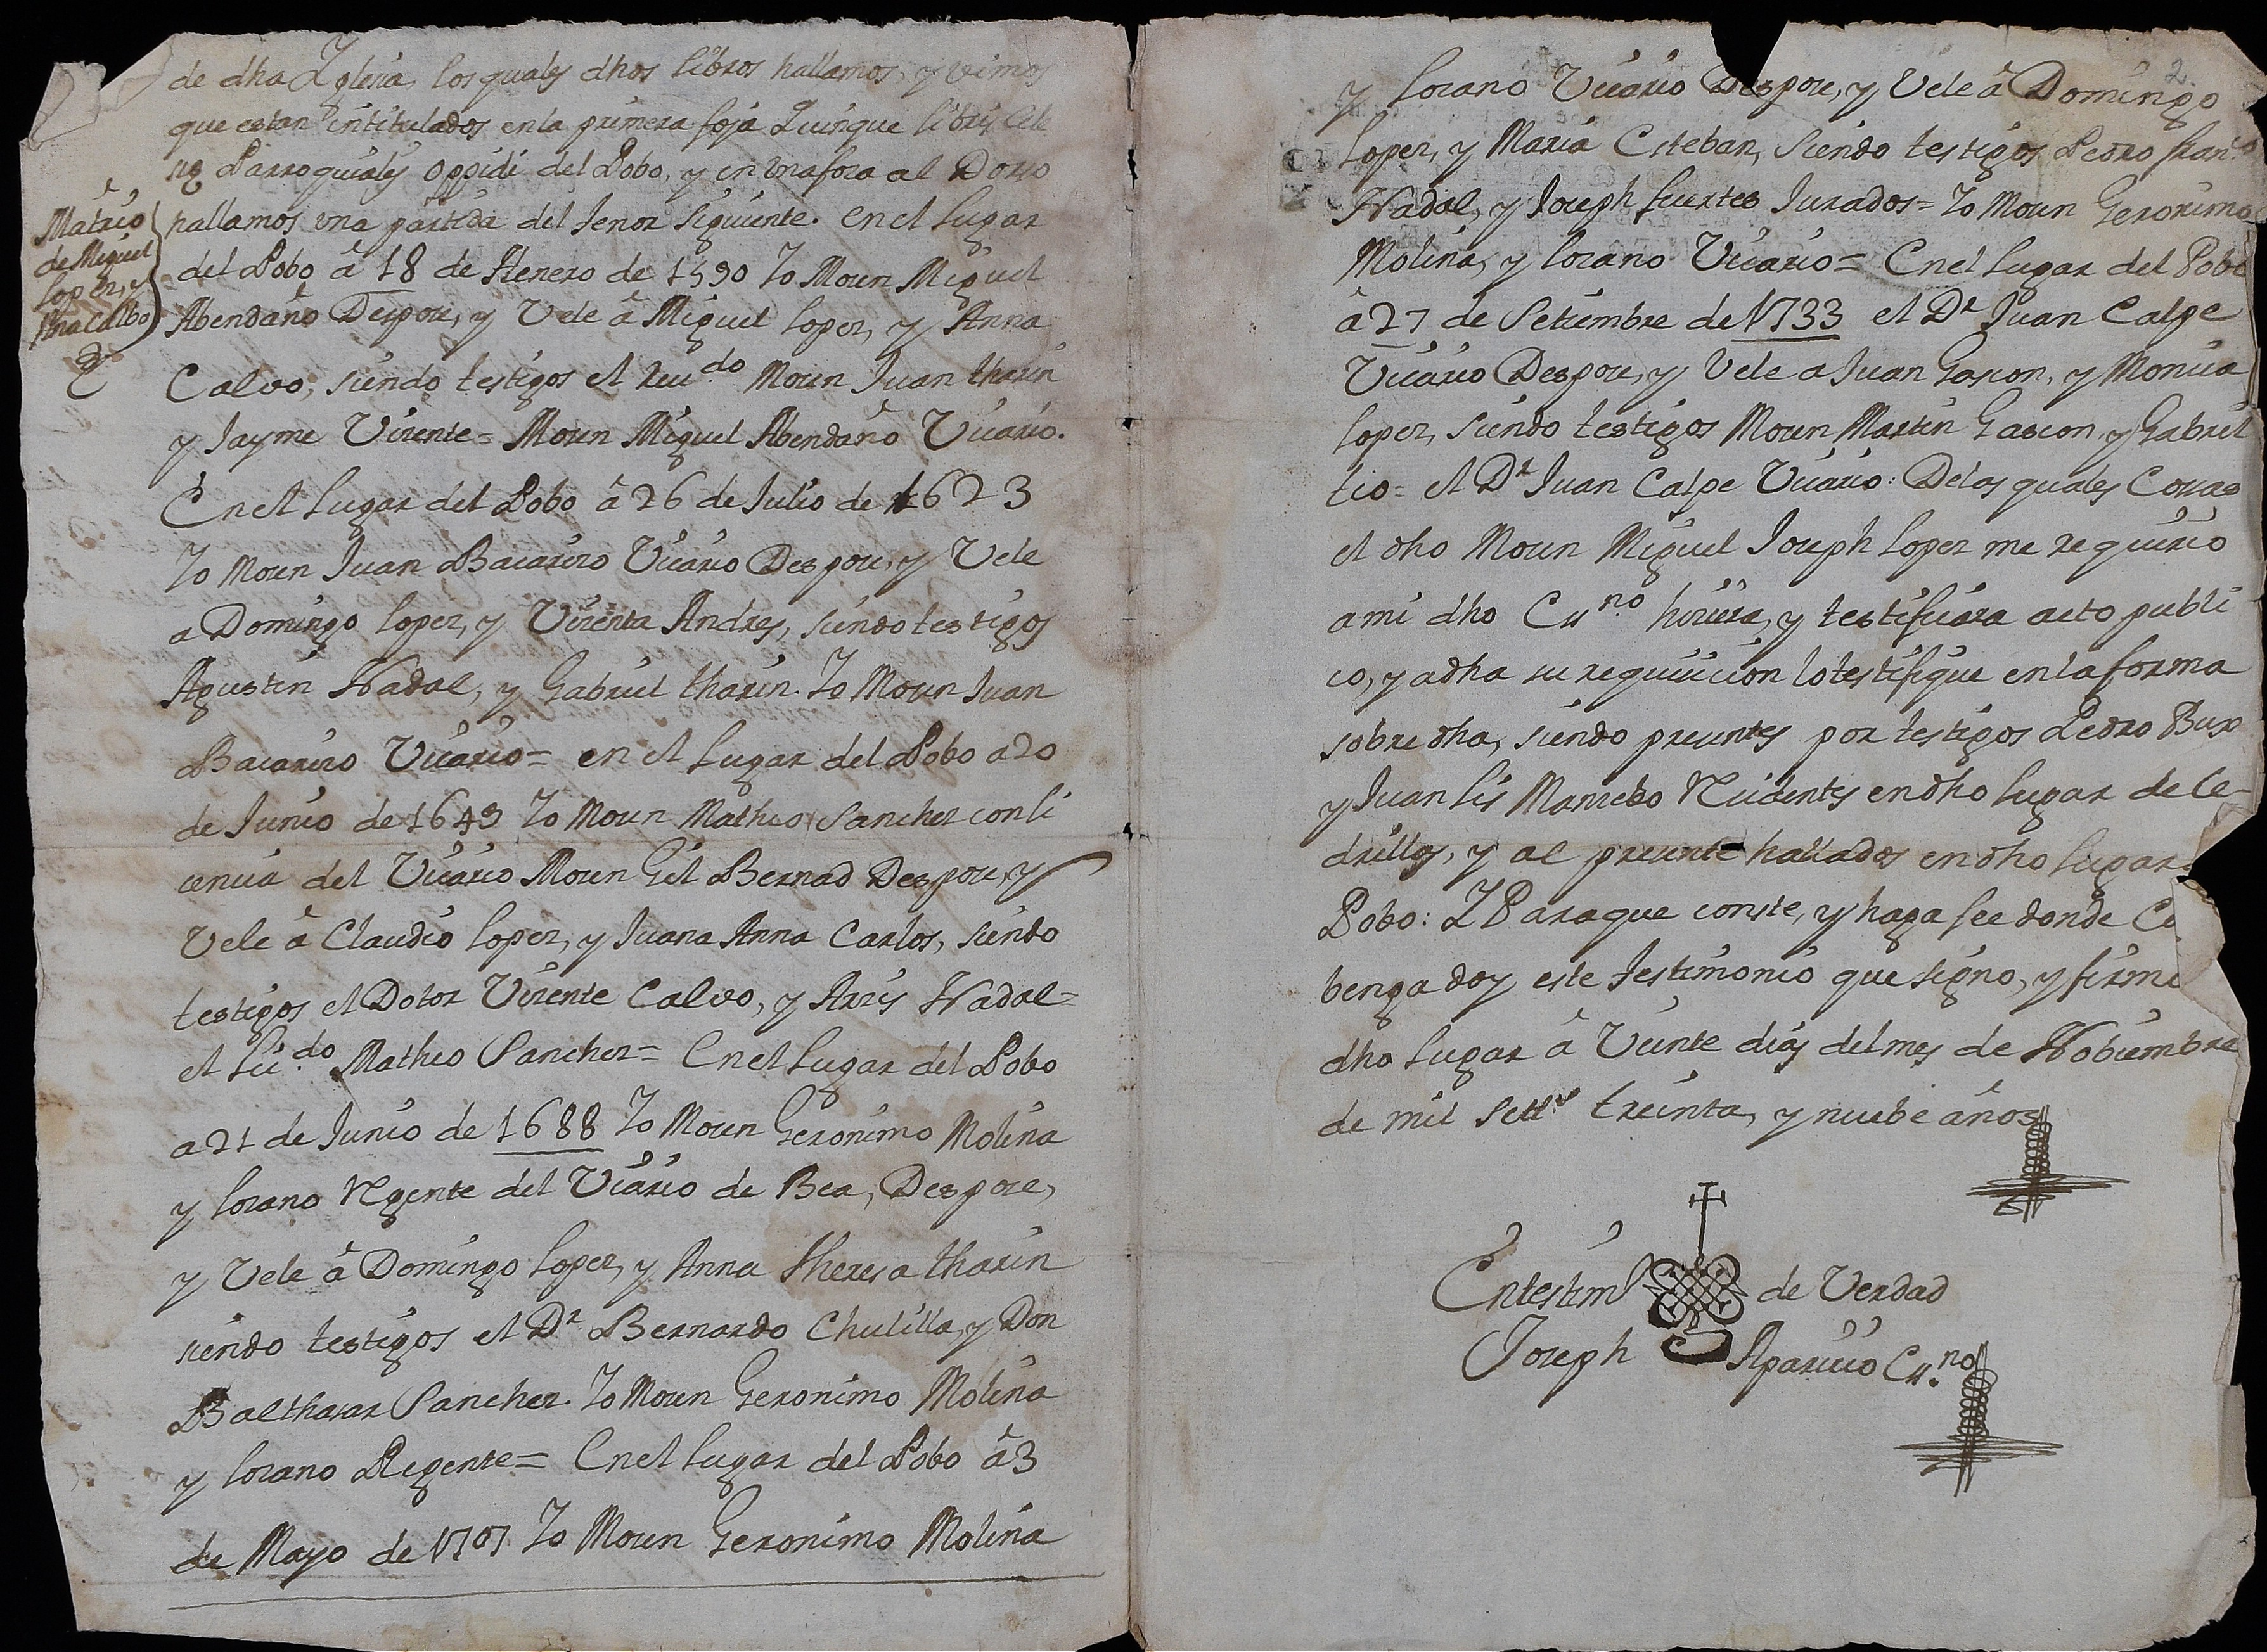 de dha Yglesia, los quales dhos libros hallamos, y vimos
que estan intitulados en la primera foja Quinque libri
Parroquiales Oppidi del Pobo, y en vna foxa al Dorso
hallamos vna partida del tenor siguiente. en el Lugar
Matrio
de Miguel
Lopez, y
Ana Calbo
del Pobo â 18 de Henero de 1590 Yo Mosen Miguel
Abendaño Despose, y Vele â Miguel Lopez, y Anna
Calvo, siendo testigos el Reudo. Mosen Juan tharin
y Jayme Vizente = Mosen Miguel Abendaño Vicario.
En el Lugar del Pobo â 26 de Julio de 1623
Yo Mosen Juan Bacarizo Vicario Despose, y Vele
a Domingo Lopez, y Vizenta Andres, siendo testigos
Agustin Nadal, y Gabriel tharin. Yo Mosen Juan
Bacarizo Vicario = en el Lugar del Pobo a 20
de Junio de 1649 Yo Mosen Matheo Sanchez con li
cencia del Vicario Mosen Gil Bernad Despose, y
Vele â Claudio Lopez, y Juana Anna Carlos, siendo
testigos el Dotor Vizente Calvo, y Axis Nadal =
el Lic.do Matheo Sanchez = En el Lugar del Pobo
a 21 de Junio de 1688 Yo Mosen Geronimo Molina
y Lozano Regente del Vicario de Bea, Despose,
y Vele â Domingo Lopez, y Anna Theresa tharin
siendo testigos el Dr. Bernardo Chulilla, y Don
Balthasar Sanchez. Yo Mosen Geronimo Molina
y Lozano Regente = En el Lugar del Pobo â 3
de Mayo de 1707 Yo Mosen Geronimo Molina
2
y Lozano Vicario Despose, y Vele â Domingo
Lopez, y Maria Esteban, siendo testigos Pedro Fran.co
Nadal, y Joseph fuertes Jurados = Yo Mosen Geronimo
Molina, y Lozano Vicario = En el Lugar del Pobo
â 27 de Setiembre de 1733 el Dr. Juan Calpe
Vicario Despose, y Vele a Juan Gascon, y Monica
Lopez, siendo testigos Mosen Martin Gascon, y Gabriel
tio = el Dr. Juan Calpe Vicario: De las quales Cosas
el dho Mosen Miguel Joseph Lopez me requirio
a mi dho Essno. hiciera, y testificara acto publi
co, y a dha su requisicion lo testifique en la forma
sobre dha, siendo presentes por testigos Pedro Bux
y Juan Lis Manzebo Residentes en dho Lugar de Ce-
drillas, y al presente hallados en dho Lugar
Pobo: Y Paraque conste, y haga fee donde Co
benga doy este testimonio que signo, y firm
dho Lugar â Veinte dias del mes de Nobiembre
de mil sett.s treinta, y nuebe años
En testim.o de Verdad
Joseph Aparicio Essno.